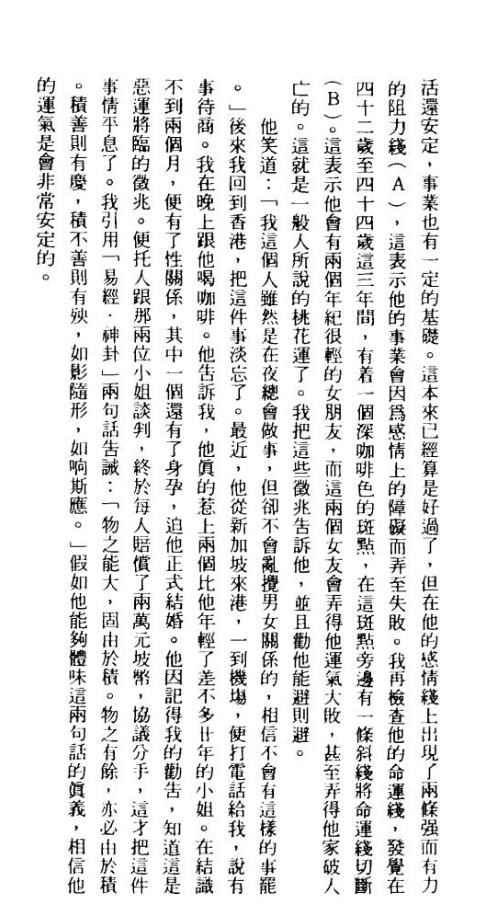 活還安定，事業也有一定的基礎。這本來已經算是好過了，但在他的感情綫上出現了兩條强而有力
的阻力綫（A），這表示他的事業會因爲感情上的障礙而弄至失敗。我再檢查他的命運綫，發覺在
四十二歲至四十四歲這三年間，有着一個深咖啡色的斑點，在這斑點旁邊有一條斜綫將命運綫切斷
（B）。這表示他會有兩個年紀很輕的女朋友，而這兩個女友會弄得他運氣大敗，甚至弄得他家破人
亡的。這就是一般人所說的桃花運了。我把這些徵兆告訴他，並且勸他能避則避。
他笑道：「我這個人雖然是在夜總會做事，但卻不會亂攪男女關係的，相信不會有這樣的事罷
。」後來我回到香港，把這件事淡忘了。最近，他從新加坡來港，一到機場，便打電話給我，說有
事待商。我在晚上跟他喝咖啡。他告訴我，他眞的惹上兩個比他年輕了差不多廿年的小姐。在結識
不到兩個月，便有了性關係，其中一個還有了身孕，迫他正式結婚。他因記得我的勸告，知道這是
惡運將臨的徵兆。便托人跟那兩位小姐談判，終於每人賠償了兩萬元坡幣，協議分手，這才把這件
事情平息了。我引用「易經．神卦」兩句話告誡：「物之能大，固由於積。物之有餘，亦必由於積
。積善則有慶，積不善則有殃，如影隨形，如响斯應。」假如他能夠體味這兩句話的眞義，相信他
的運氣是會非常安定的。